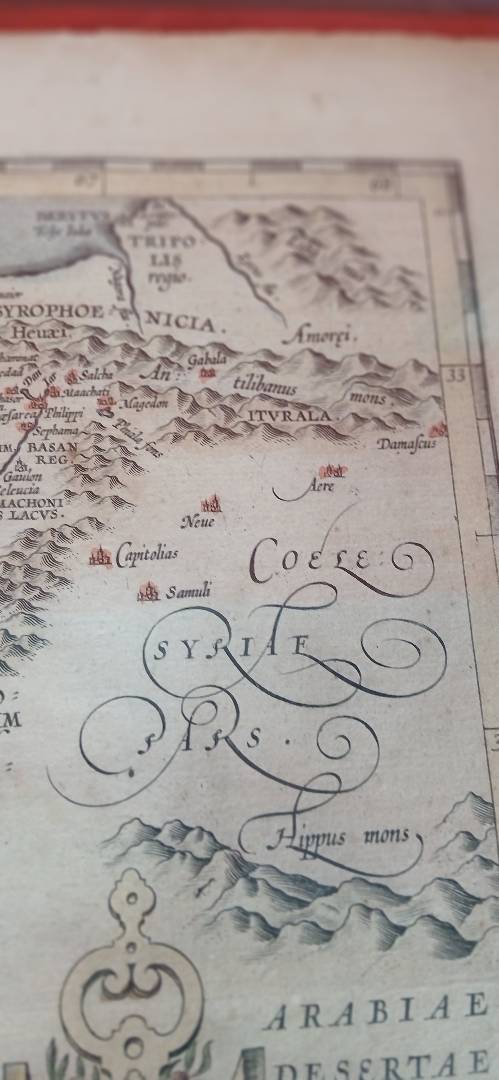 67
68
BERITVS
TRIPO
LIS
regio.
SYROPHOE
NICIA.
Heuæi.
Amorei.
33
Gabala
Salcha
An :
tilibanus
mons.
Maachati
Magedon
Philippi
ITVRALA.
Sephama
Phiale fons
Damascus
BASAN
REG.
Gaulon
Seleucia
MACHONI
S LACVS.
Aere
Neue
Capitolias
Samuli
COELE:
SYRIAE
PARS.
IM
Hippus mons
ARABIAE
DESERTAE